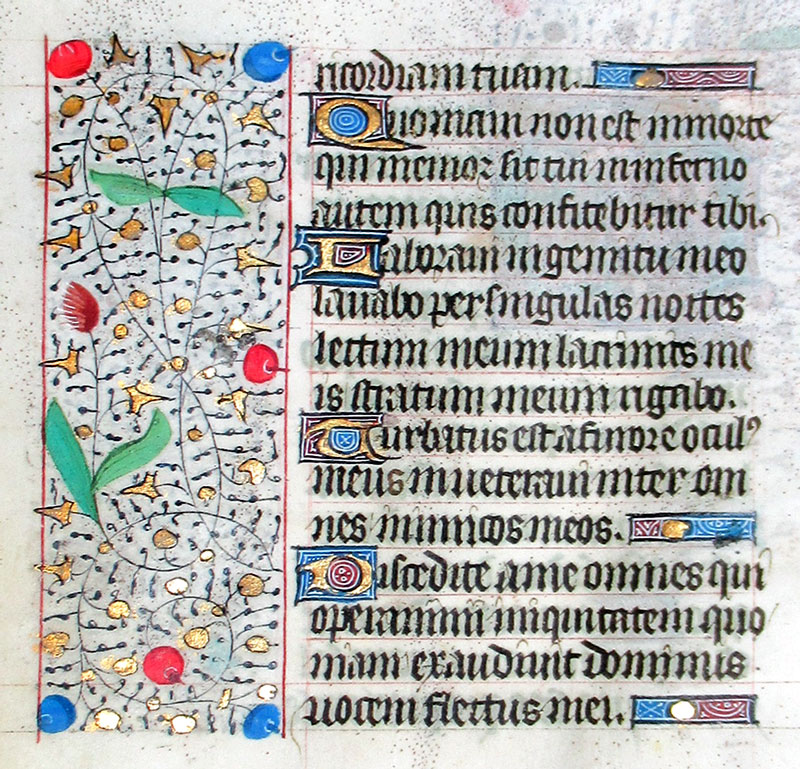 ricordiam tuam.
Quoniam non est in morte
qui memor sit tui in inferno
autem quis confitebitur tibi.
Laboraui in gemitu meo
lauabo per singulas noctes
lectum meum lacrimis me
is stratum meum rigabo.
Turbatus est a furore oculꝰ
meus inueteraui inter om
nes inimicos meos.
Discedite a me omnes qui
operamini iniquitatem quo
niam exaudiuit dominus
uocem flectus mei.